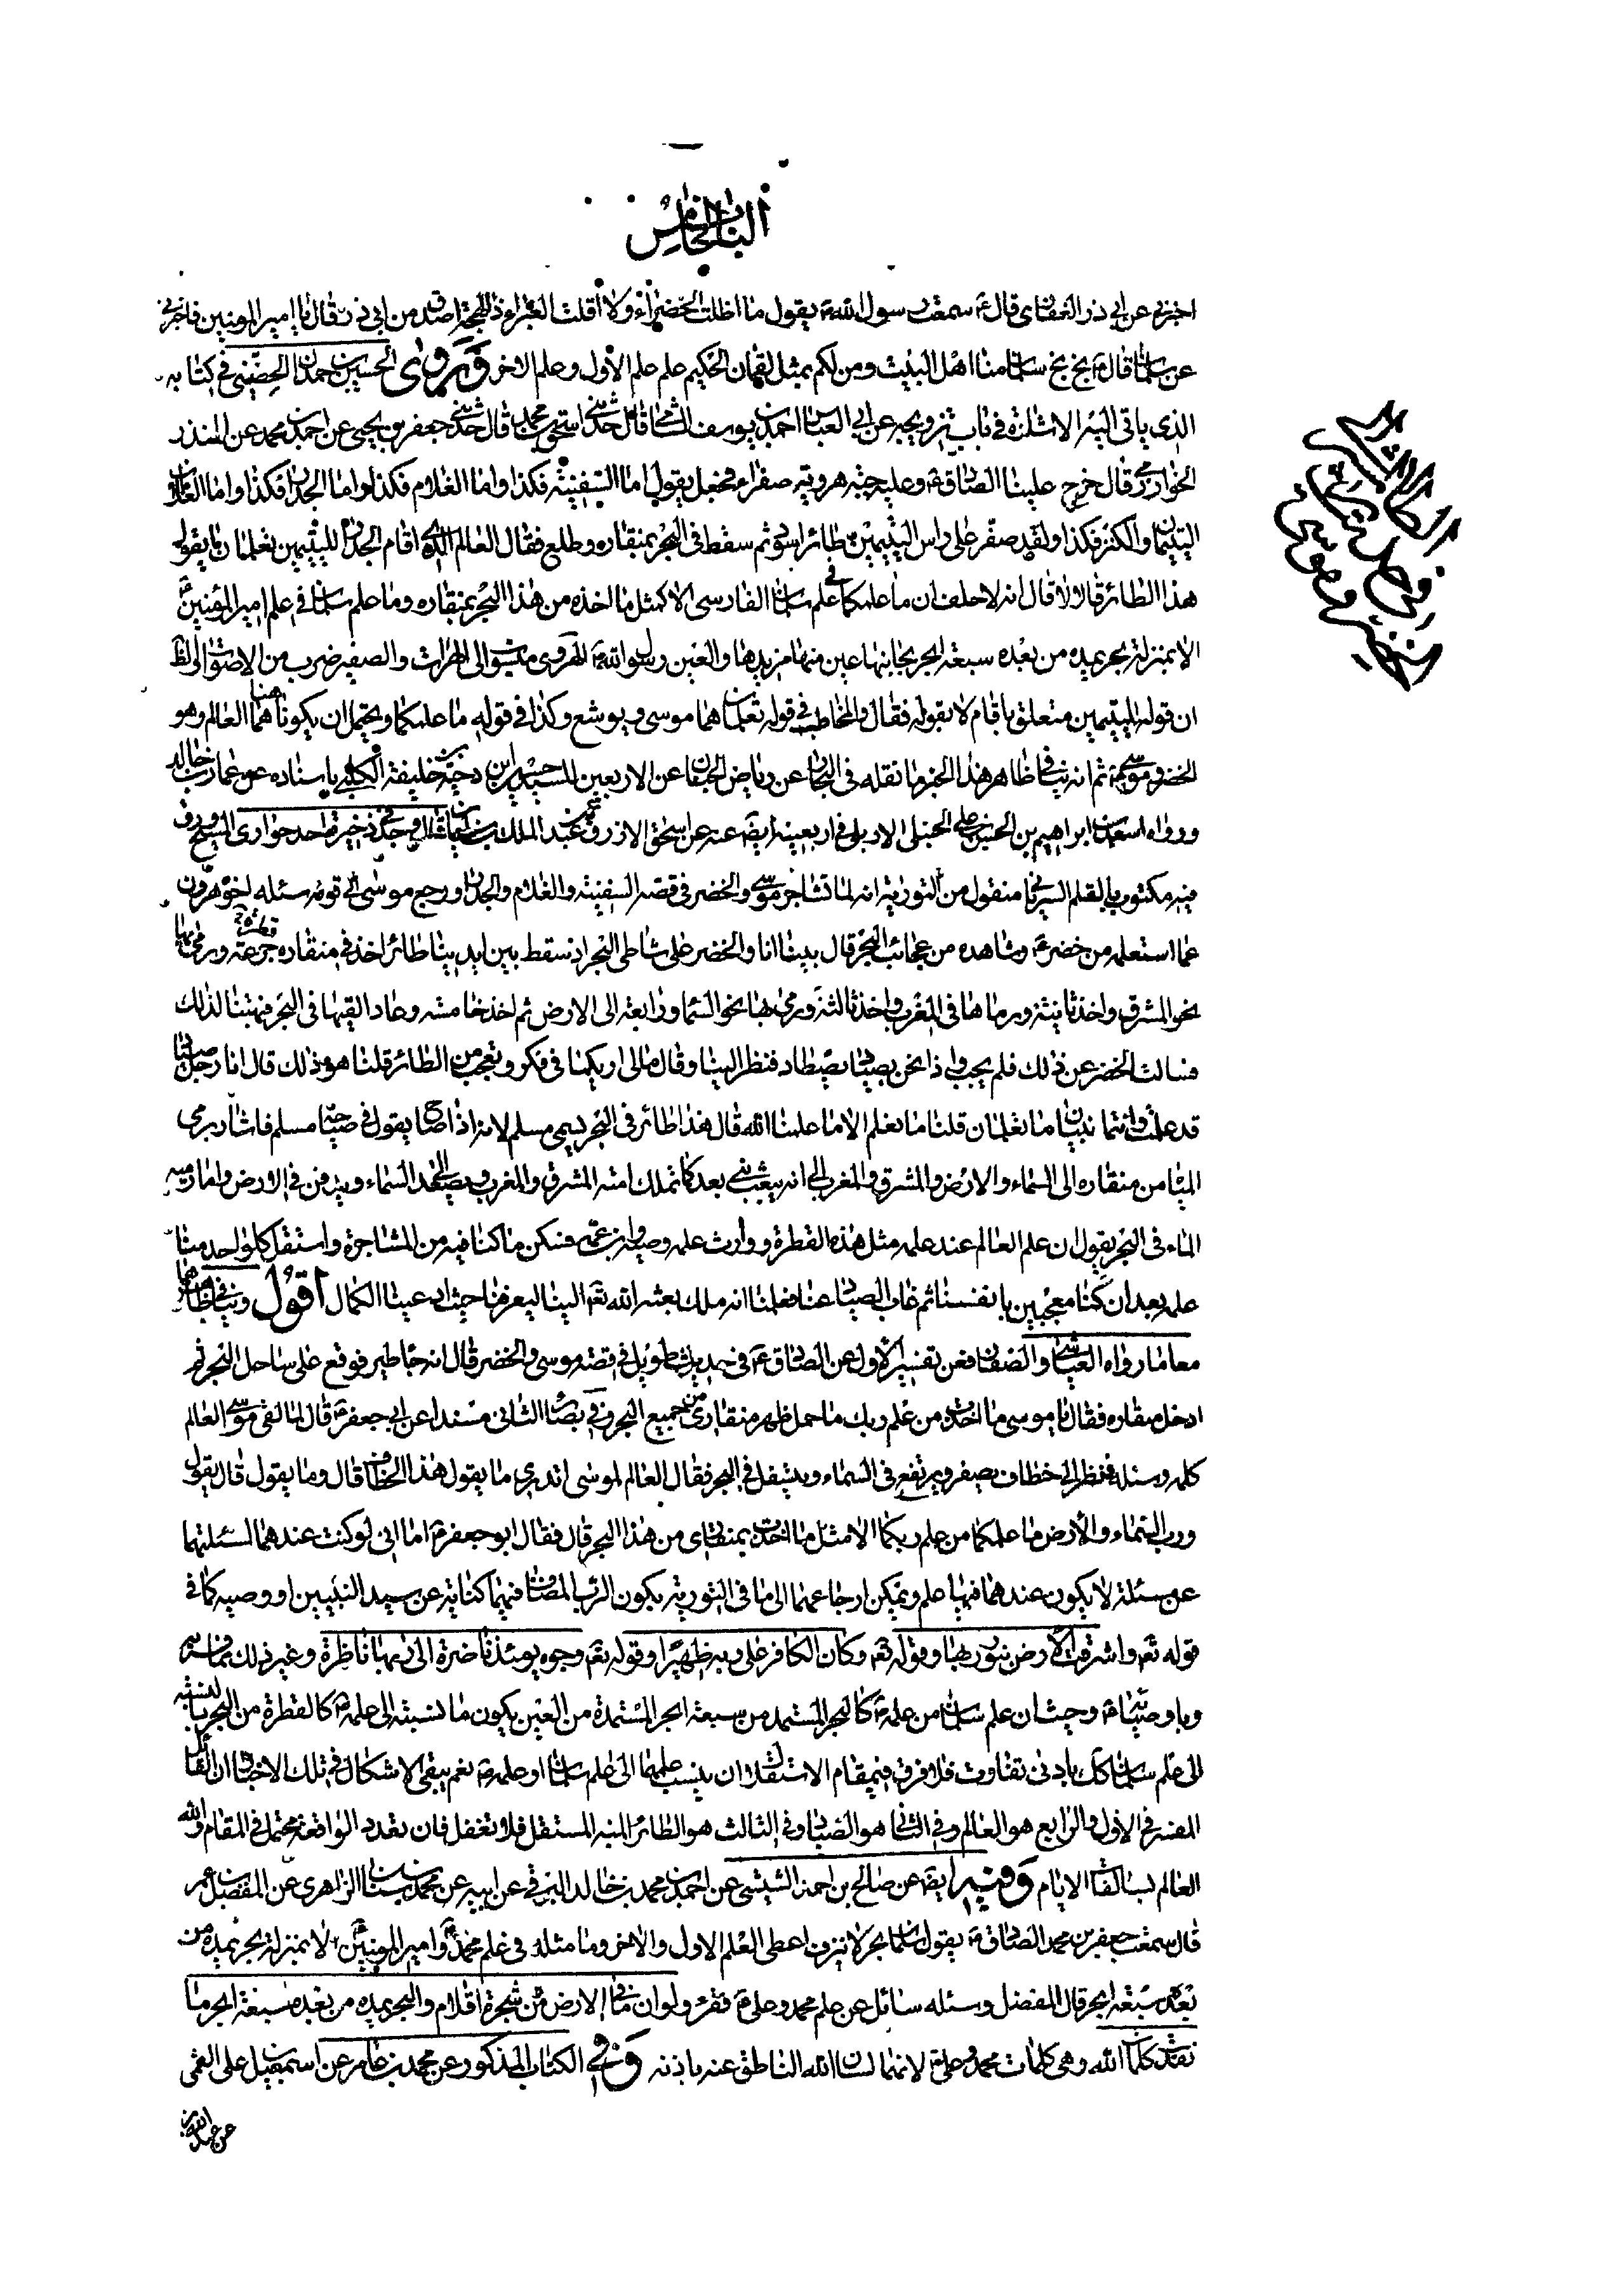 الباب الخامس
اخبرني عن ابي ذر الغفاري قال ع سمعت رسول الله ص يقول ما اظلت الخضراء ولا اقلت الغبراء ذا لهجة اصدق من ابي ذر قال يا امير المؤمنين فاخبرني
عن سلمان قال ع بخ بخ سلمان منا اهل البيت ومن لكم بمثل لقمان الحكيم علم علم الأول وعلم الاخر وروى الحسين بن حمدان الحضيني في كتابه
الذي ياتي اليه الاشارة في باب تزويجه عن ابي العباس احمد بن يوسف الشامي قال حدثني اسحق بن محمد قال حدثني جعفر بن يحيى عن احمد بن محمد عن المنذر
الخوارزمي قال خرج علينا الصادق ع وعليه جبة هروية صفراء فجعل يقول اما السفينة فكذا واما الغلام فكذا واما الجدار فكذا واما الغلامان
اليتيمان والكنز فكذا ولقد صفر على راس اليتيمين طائر ثم سقط في البحر بمنقاره وطلع فقال العالم الذي اقام الجدار لليتيمين تعلمان ما يقول
هذا الطائر قالا لا قال انه لاحلف ان ما علمكما في علم سلمان الفارسي الا كمثل ما اخذه من هذا البحر بمنقاره وما علم سلمان في علم امير المؤمنين ع
الا بمنزلة بحر يمده من بعده سبعة ابحر بجانبها عين منها مزيدها والعين رسول الله ص الهروي منسوب الى الهرات والصفير ضرب من الاصوات والظ
ان قوله لليتيمين متعلق باقام لا بقوله فقال والمخاطب في قوله تعلمان هما موسى ويوشع وكذا في قوله ما علمكما ويحتمل ان يكونا هنا هما العالم وهو
الخضر وموسى ع ثم انه ينافي ظاهر هذا الخبر ما نقله في البحار عن رياض الجنان عن الاربعين للسيد حسين بن دحية بن خليفة الكلبي باسناده عن عمار بن خالد
ورواه اسعد بن ابراهيم بن الحسن بن علي الحنبلي الاربلي في اربعينه ايضا عنه عن اسحق الازرق عن عبد الملك بن سليمان قال وجد في ذخيرة احد حواري المسيح ورق
فيه مكتوب بالقلم السرياني منقول من التورية انه لما تشاجر موسى والخضر في قصة السفينة والغلام والجدار ورجع موسى الى قومه سئله اخوه هرون
عما استعلمه من خضر ع وشاهده من عجائب البحر قال بينا انا والخضر على شاطئ البحر اذ سقط بين ايدينا طائر اخذ في منقاره قطرة جرعة ورمى بها
نحو المشرق واخذ ثانية ورماها في المغرب واخذ ثالثة ورمى بها نحو السماء ورابعة الى الارض ثم اخذ خامسة وعاد القيها في البحر فبهتنا لذلك
فسالت الخضر عن ذلك فلم يجب واذا نحن بصياد يصطاد فنظر الينا وقال مالي اريكما في فكر وتعجب من الطائر قلنا هو ذلك قال انا رجل صياد
قد علمت وانتما نبيان ما تعلمان قلنا ما نعلم الا ما علمنا الله قال هذا طائر في البحر يسمى مسلم لانه اذا صاح يقول في صياحه مسلم فاشار برمي
الماء من منقاره الى السماء والارض والمشرق والمغرب الى انه يبعث نبي بعد كما تملك امته المشرق والمغرب ويصعد الى السماء ويدفن في الارض واما رميه
الماء في البحر يقول ان علم العالم عند علمه مثل هذه القطرة ووارث علمه وصيه وابن عمه فسكن ما كنا فيه من المشاجرة واستقل كل واحد منا
علمه بعد ان كنا معجبين بانفسنا ثم غاب الصياد عنا فعلمنا انه ملك بعثه الله تعه الينا ليعرفنا حيث ادعينا الكمال اقول وينافي ظاهرهما
معا ما رواه العياشي والصفار فعن تفسير الاول عن الصادق ع في حديث طويل في قصة موسى والخضر قال انه جا طير فوقع على ساحل البحر ثم
ادخل منقاره فقال يا موسى ما اخذت من علم ربك ما حمل ظهر منقاري من جميع البحر وفي بصائر الثاني مسندا عن ابي جعفر ع قال لما لقى موسى العالم
كلمه وسئله فنظر الى خطاف يصفر ويرتفع في السماء ويتسفل في البحر فقال العالم لموسى اتدري ما يقول هذا الخطاف قال وما يقول قال يقول
ورب السماء والأرض ما علمكما من علم ربكما الا مثل ما اخذت بمنقاري من هذا البحر قال فقال ابو جعفر ع اما اني لو كنت عندهما لسئلتهما
عن مسئلة لا يكون عندهما فيها علم ويمكن ارجاعهما الى ما في التورية بكون الرب المضاف فيهما كناية عن سيد النبيين او وصيه كما في
قوله تعه واشرقت الأرض بنور ربها وقوله تعه وكان الكافر على ربه ظهيرا وقوله تعه وجوه يومئذ ناضرة الى ربها ناظرة وغير ذلك مما فسر به
وباوصيائه ع وحيث ان علم سلمان من علمه ع كالبحر المستمد من سبعة ابحر المستمدة من العين يكون ما نسبته الى علمه ع كالقطرة من البحر بالنسبة
الى علم سلمان كك بادنى تفاوت فلا فرق في مقام الاستقلال ان ينسب علمهما الى علم سلمان او علمه ع نعم يبقى الاشكال في تلك الاخبار ان القائل
المفسر في الاول والرابع هو العالم وفي الثاني هو الصياد وفي الثالث هو الطائر المنبه المستقل فلا تغفل فان تعدد الواقعة محتمل في المقام والله
العالم وفيه ايضا عن صالح بن احمد عن احمد بن محمد بن خالد البرقي عن ابيه عن محمد بن سنان الزاهري عن المفضل بن عمر
قال سمعت جعفر بن محمد الصادق ع يقول سلمان بحر لا ينزف اعطى العلم الاول والاخر وما مثله في علم محمد ص وامير المؤمنين ع الا بمنزلة بحر يمده من
بعده سبعة ابحر قال المفضل وسئله سائل عن علم محمد وعلي ع فقرء ولو ان ما في الارض من شجرة اقلام والبحر يمده من بعده سبعة ابحر ما
نفدت كلمات الله وهي كلمات محمد وعلي ع لانهما لسان الله الناطق عنه باذنه وفي الكتاب المذكور عن محمد بن عامر عن اسمعيل بن علي القمي
عن عبد الله بن